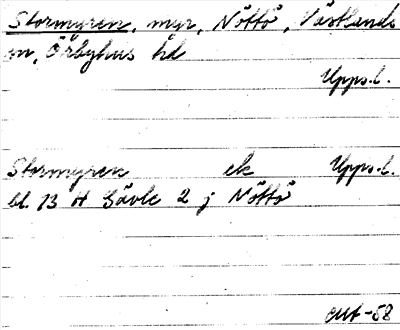 Stormyren, myr, Nöttö, Västlands
sn, Örbyhus hd
Upps.l.
Stormyren ek Upps.l.
bl. 13 H Gävle 2 j Nöttö
-58